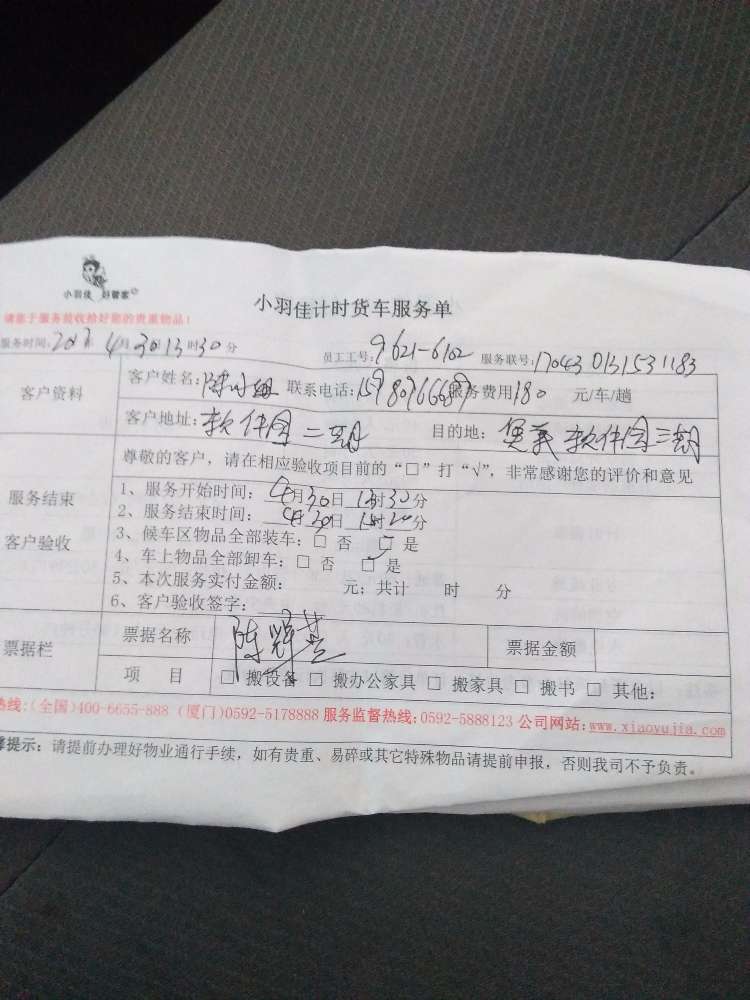 小羽佳 好管家
小羽佳计时货车服务单
请您于服务前收拾好您的贵重物品!
服务时间: 2017年4月30日13时30分 员工工号: 9621-6102 服务联号: 170430131531183
客户资料
客户姓名: 陈小姐 联系电话: 15980966689 服务费用 180 元/车/趟
客户地址: 软件园二期 目的地: 集美软件园三期
尊敬的客户,请在相应验收项目前的“□”打“√”,非常感谢您的评价和意见
服务结束
客户验收
1、服务开始时间: 4月30日 13时30分
2、服务结束时间: 4月30日 15时20分
3、候车区物品全部装车: □ 否 □ 是
4、车上物品全部卸车: □ 否 □ 是
5、本次服务实付金额: 元;共计 时 分
6、客户验收签字:
票据栏
票据名称 陈 票据金额
项 目 □ 搬设备 □ 搬办公家具 □ 搬家具 □ 搬书 □ 其他:
热线:(全国)400-6655-888 (厦门)0592-5178888 服务监督热线:0592-5888123 公司网站:www.xiaoyujia.com
馨提示: 请提前办理好物业通行手续,如有贵重、易碎或其它特殊物品请提前申报,否则我司不予负责。